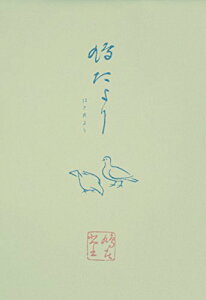 鳩たより
はとたより
鳩居堂